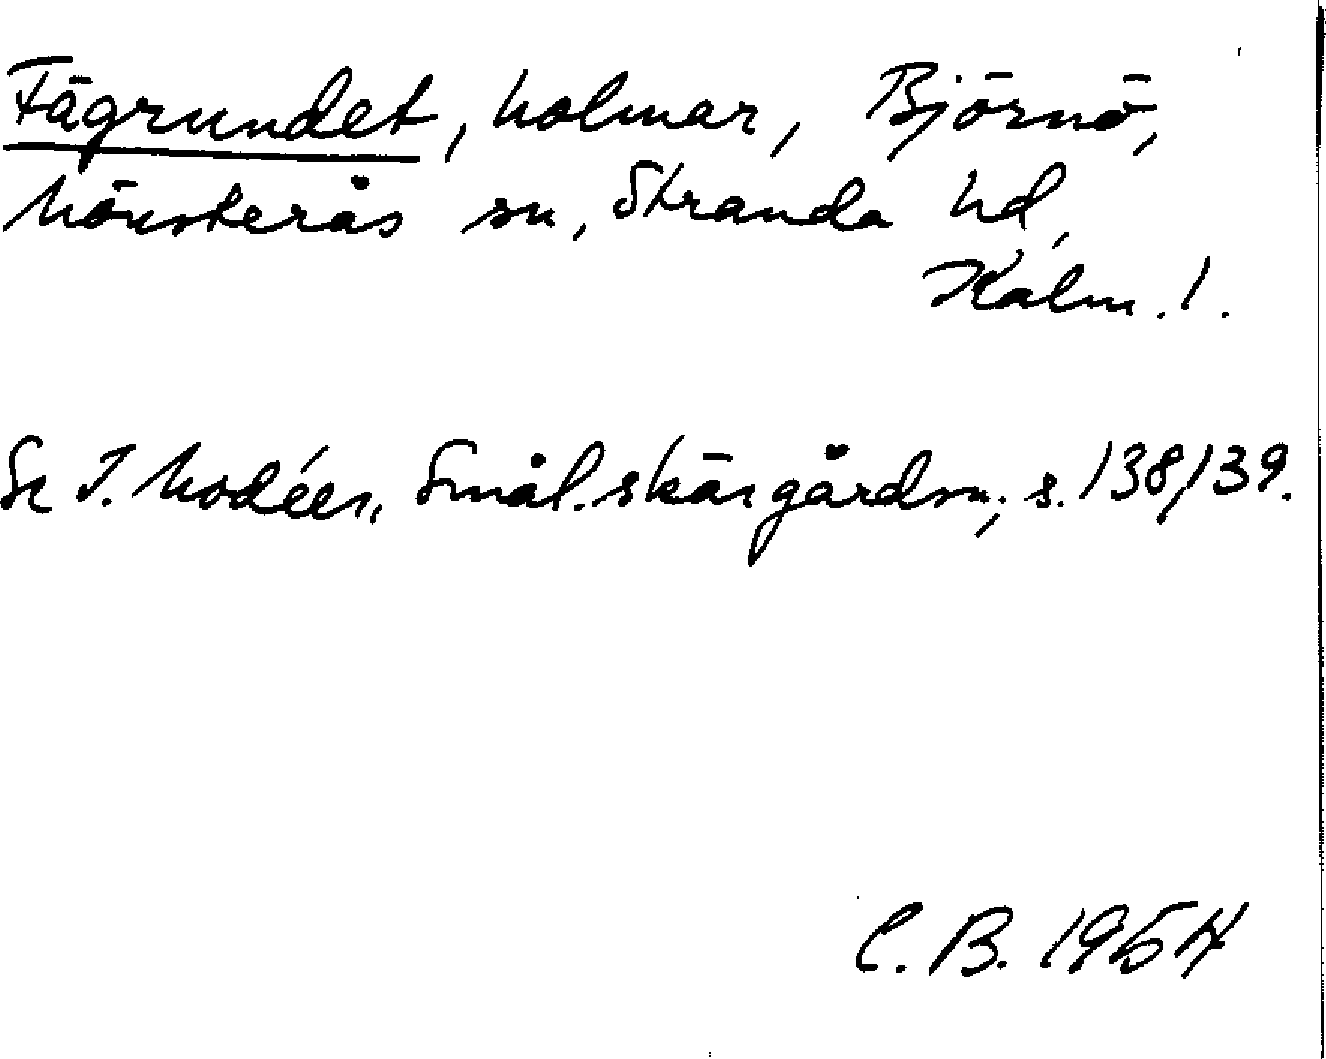 Fägrundet, holmar, Björnö,
Mönsterås sn, Stranda hd,
Kalm. l.
Se I. Modéer, Smål. skärgårdsn., s. 138/39.
C. B. 1954